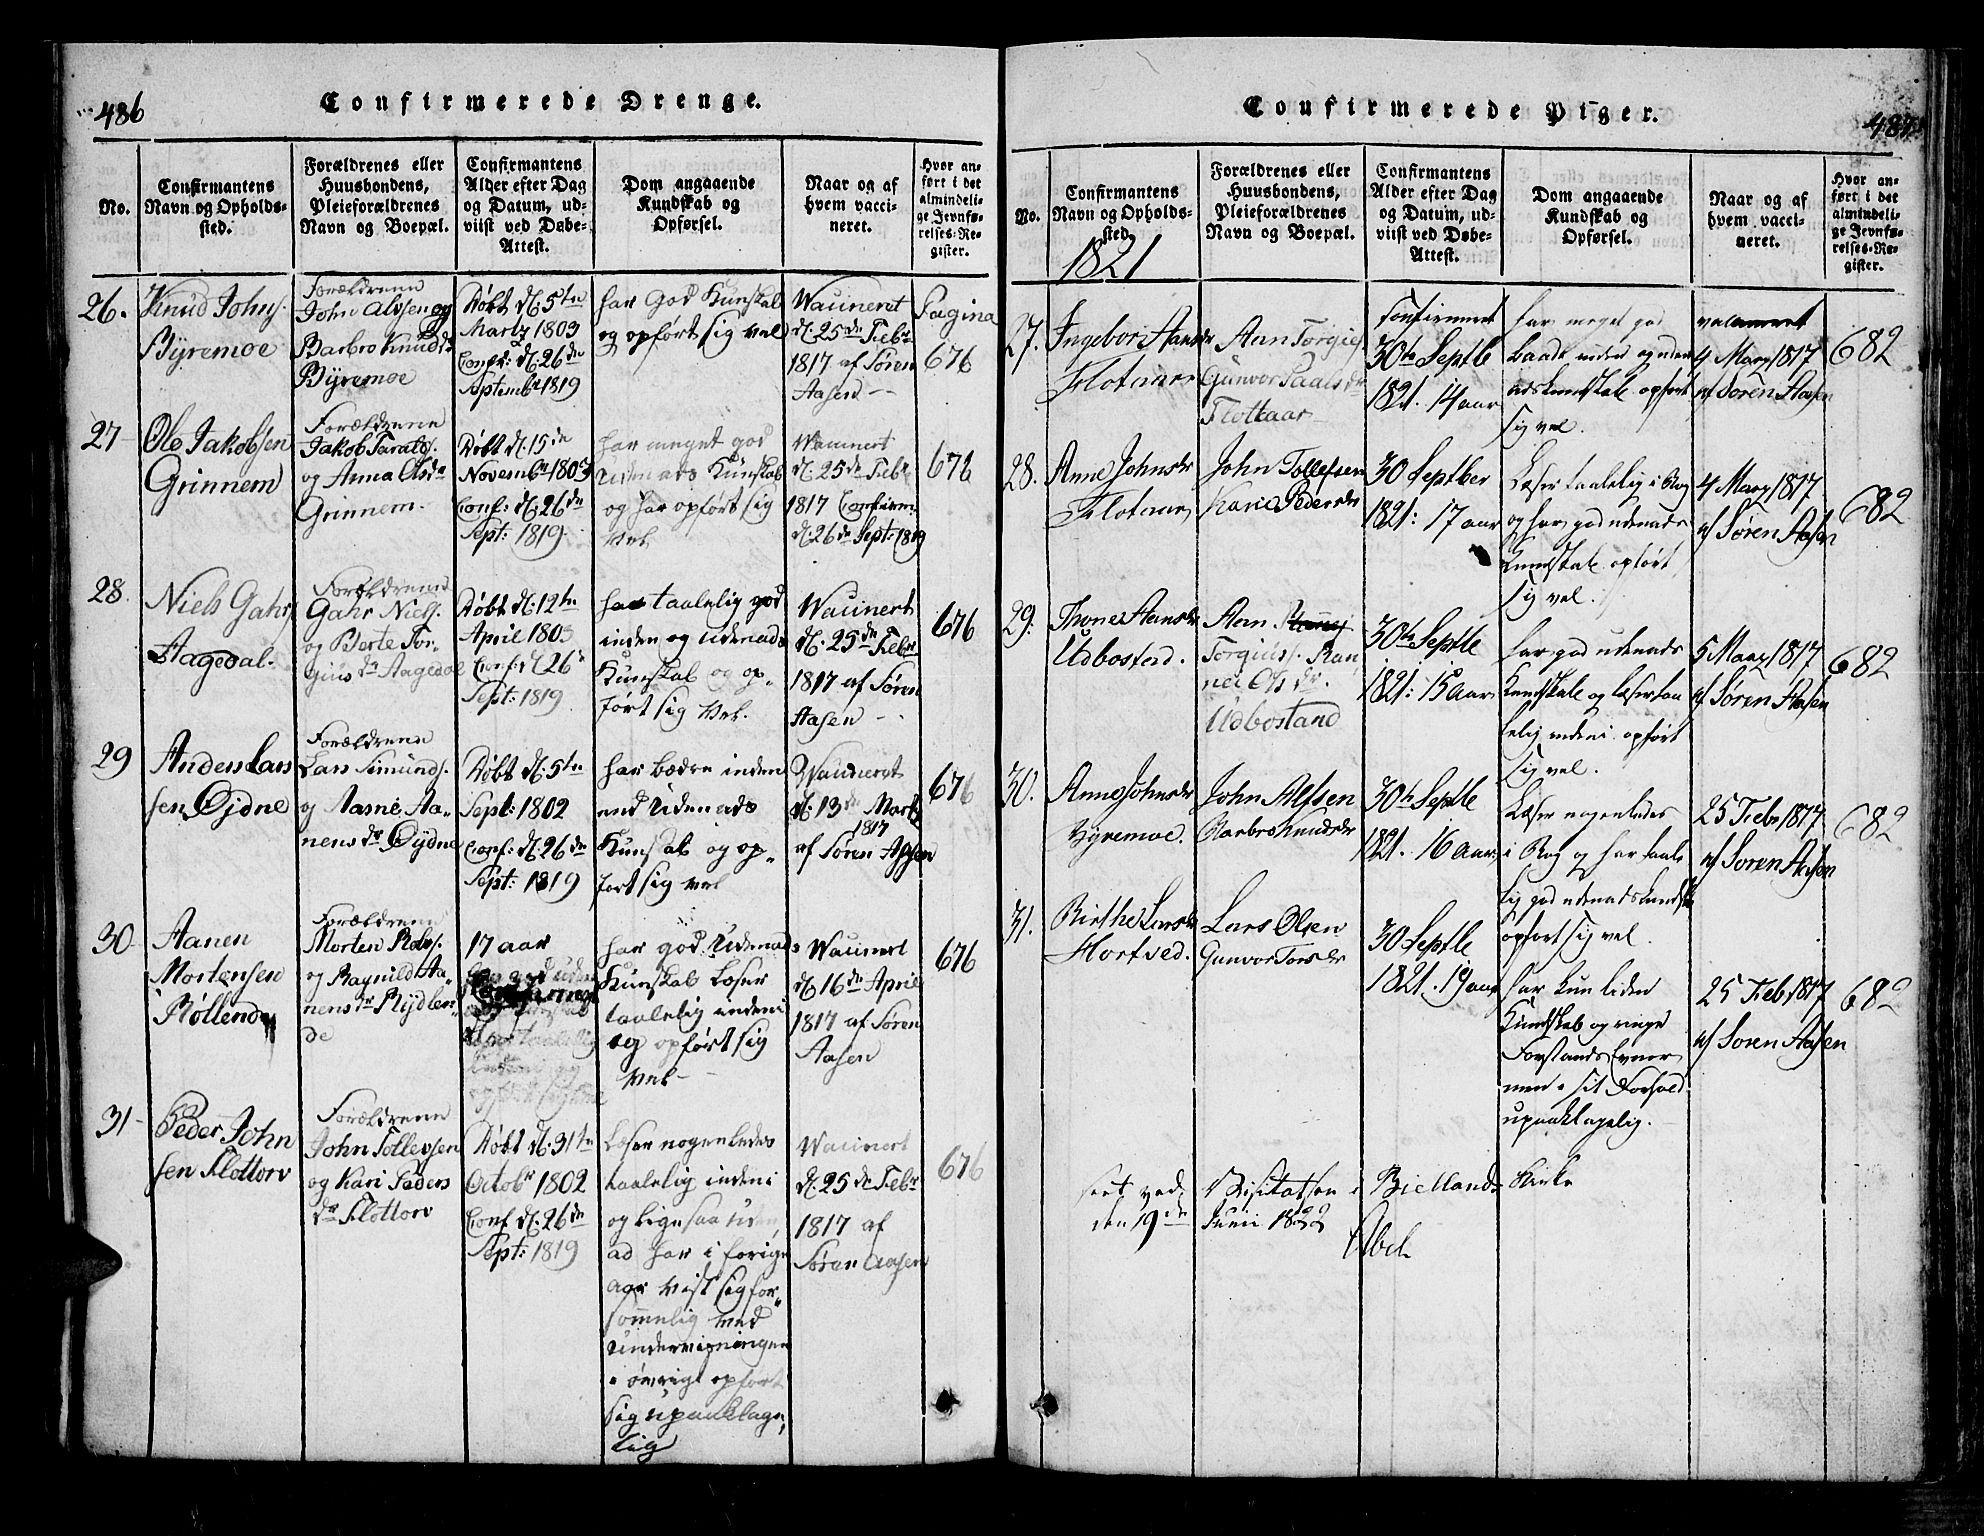 486
Confirmerede Drenge.
No.
Confirmantens
Navn og Opholds-
sted.
Forældrenes eller
Huusbondens,
Pleieforældrenes
Navn og Boepæl.
Confirmantens
Alder efter Dag
og Datum, ud-
viist ved Døbe-
Attest.
Dom angaaende
Kundskab og
Opførsel.
Naar og af
hvem vacci-
neret.
Hvor an-
ført i det
almindeli-
ge Jevnfø-
relses-Re-
gister.
26.
Knud Johns.
Byremoe
Forældrene
John Alvsen og
Barbro Knudsdr
Byremoe
Døbt d: 5te
Martz 1803
Conf: d: 26de
Septembr 1819
har God Kunskab
og opført sig vel
Wacineret
d: 25de Febr
1817 af Søren
Aasen
Pagina
676
27
Ole Jakobsen
Grinnem
Forældrene
Jakob Taralds.
og Anna Olsdr
Grinnem.
Døbt d: 15de
Novembr 1803
Conf: d: 26de
Sept: 1819
har meget god
Udenads Kunskab
og har opført sig
Vel
Wacinert
d: 25de Febr
1817 Confirm
d: 26de Sept: 1819
676
28.
Niels Gahrs.
Aagedal.
Forældrene
Gahr Niels.
og Berte Tor-
gius dr Aagedal
Døbt d: 12te
April 1803
Conf: d: 26de
Sept: 1819
har taalelig god
inden og Udenads
Kunskab og op-
ført sig Vel.
Wacinert
d: 25de Febr
1817 af Søren
Aasen
676
29
Anders Lars
sen Øydne
Forældrene
Lars Simunds.
og Aasne Aa-
nens dr Øydne
Døbt d: 5te
Sept: 1802
Conf: d: 26de
Sept: 1819
har bædre inden
end Udenads
Kunskab og op-
ført sig Vel
Wacineret
d: 13de Martz
1817
af Søren Aasen
676
30
Aanen
Mortensen
Røllend
Forældrene
Morten Rolvs.
og Ragnild Aa-
nens dr Rydlen-
de
17 aar
har god Udenads
Kunskab Læser
taalelig indeni
og opført sig
Vel
Wacinert
d: 16de April
1817 af Søren
Aasen
676
31
Peder John
sen Flottorv
Forældrene
John Tollevsen
og Kari Peders
dr Flottorv
Døbt d: 31te
Octobr 1802
Conf d: 26de
Sept: 1819
Læser nogenledes
taalelig indeni
og ligesaa uden
ad har i forige
aar vist sig for-
sømmelig med
Undervisningen
i øvrigt opført
sig upaaklage-
lig
Wacinert
d: 25de Febr
1817 af
Søren Aasen
676
487
Confirmerede Piger.
No.
Confirmantens
Navn og Opholds-
sted.
1821
Forældrenes eller
Huusbondens,
Pleieforældrenes
Navn og Boepæl.
Confirmantens
Alder efter Dag
og Datum, ud-
viist ved Døbe-
Attest.
Dom angaaende
Kundskab og
Opførsel.
Naar og af
hvem vacci-
neret.
Hvor an-
ført i det
almindeli-
ge Jevnfø-
relses-Re-
gister.
27.
Ingebor Aansdr
Flotaar
Aan Torgius.
Gunvor Paalsdr
Flottaar
Confirmeret
30te Septbr
1821. 14 aar
har meget god
baade inden og uden
adskundskab opført
sig vel.
4 Marz 1817
af Søren Aasen
682
28.
Anne Johnsdr
Flotaar
John Tollefsen
Karie Pedersdr
30 Septber
1821: 17 aar
Læser taalelig i Bog
og har god udenads
Kundskab opført
sig vel.
4 Marz 1817
af Søren Aasen
682
29.
Throne Aansdr
Udbostad.
Aan
Torgius. Ran
nei Ols dr.
Udbostand
30te Septbr
1821: 15 aar
har god udenads
Kundskab og læser taa
lelig indeni opført
sig vel.
5 Marz 1817
af Søren Aasen
682
30.
Anne Johnsdr
Byremoe.
John Alfsen
Barbro Knudsdr
30te Septbr
1821. 16 aar
Læser nogenledes
i Bog og har taale
lig god udenadskundsk
opført sig vel.
25 Febr 1817
af Søren Aasen
682
31.
Birthe Larsdr
Hortved.
Lars Olsen
Gunvor Torsdr
30 Septbr
1821. 19 aar
har kun liden
Kundskab og ringe
Forstands Evner
men i sit Forhold
upaaklagelig.
25 Feb 1817
af Søren Aasen
682
seet ved Visitatsen i Biellands Kirke
den 19de Junii 1822